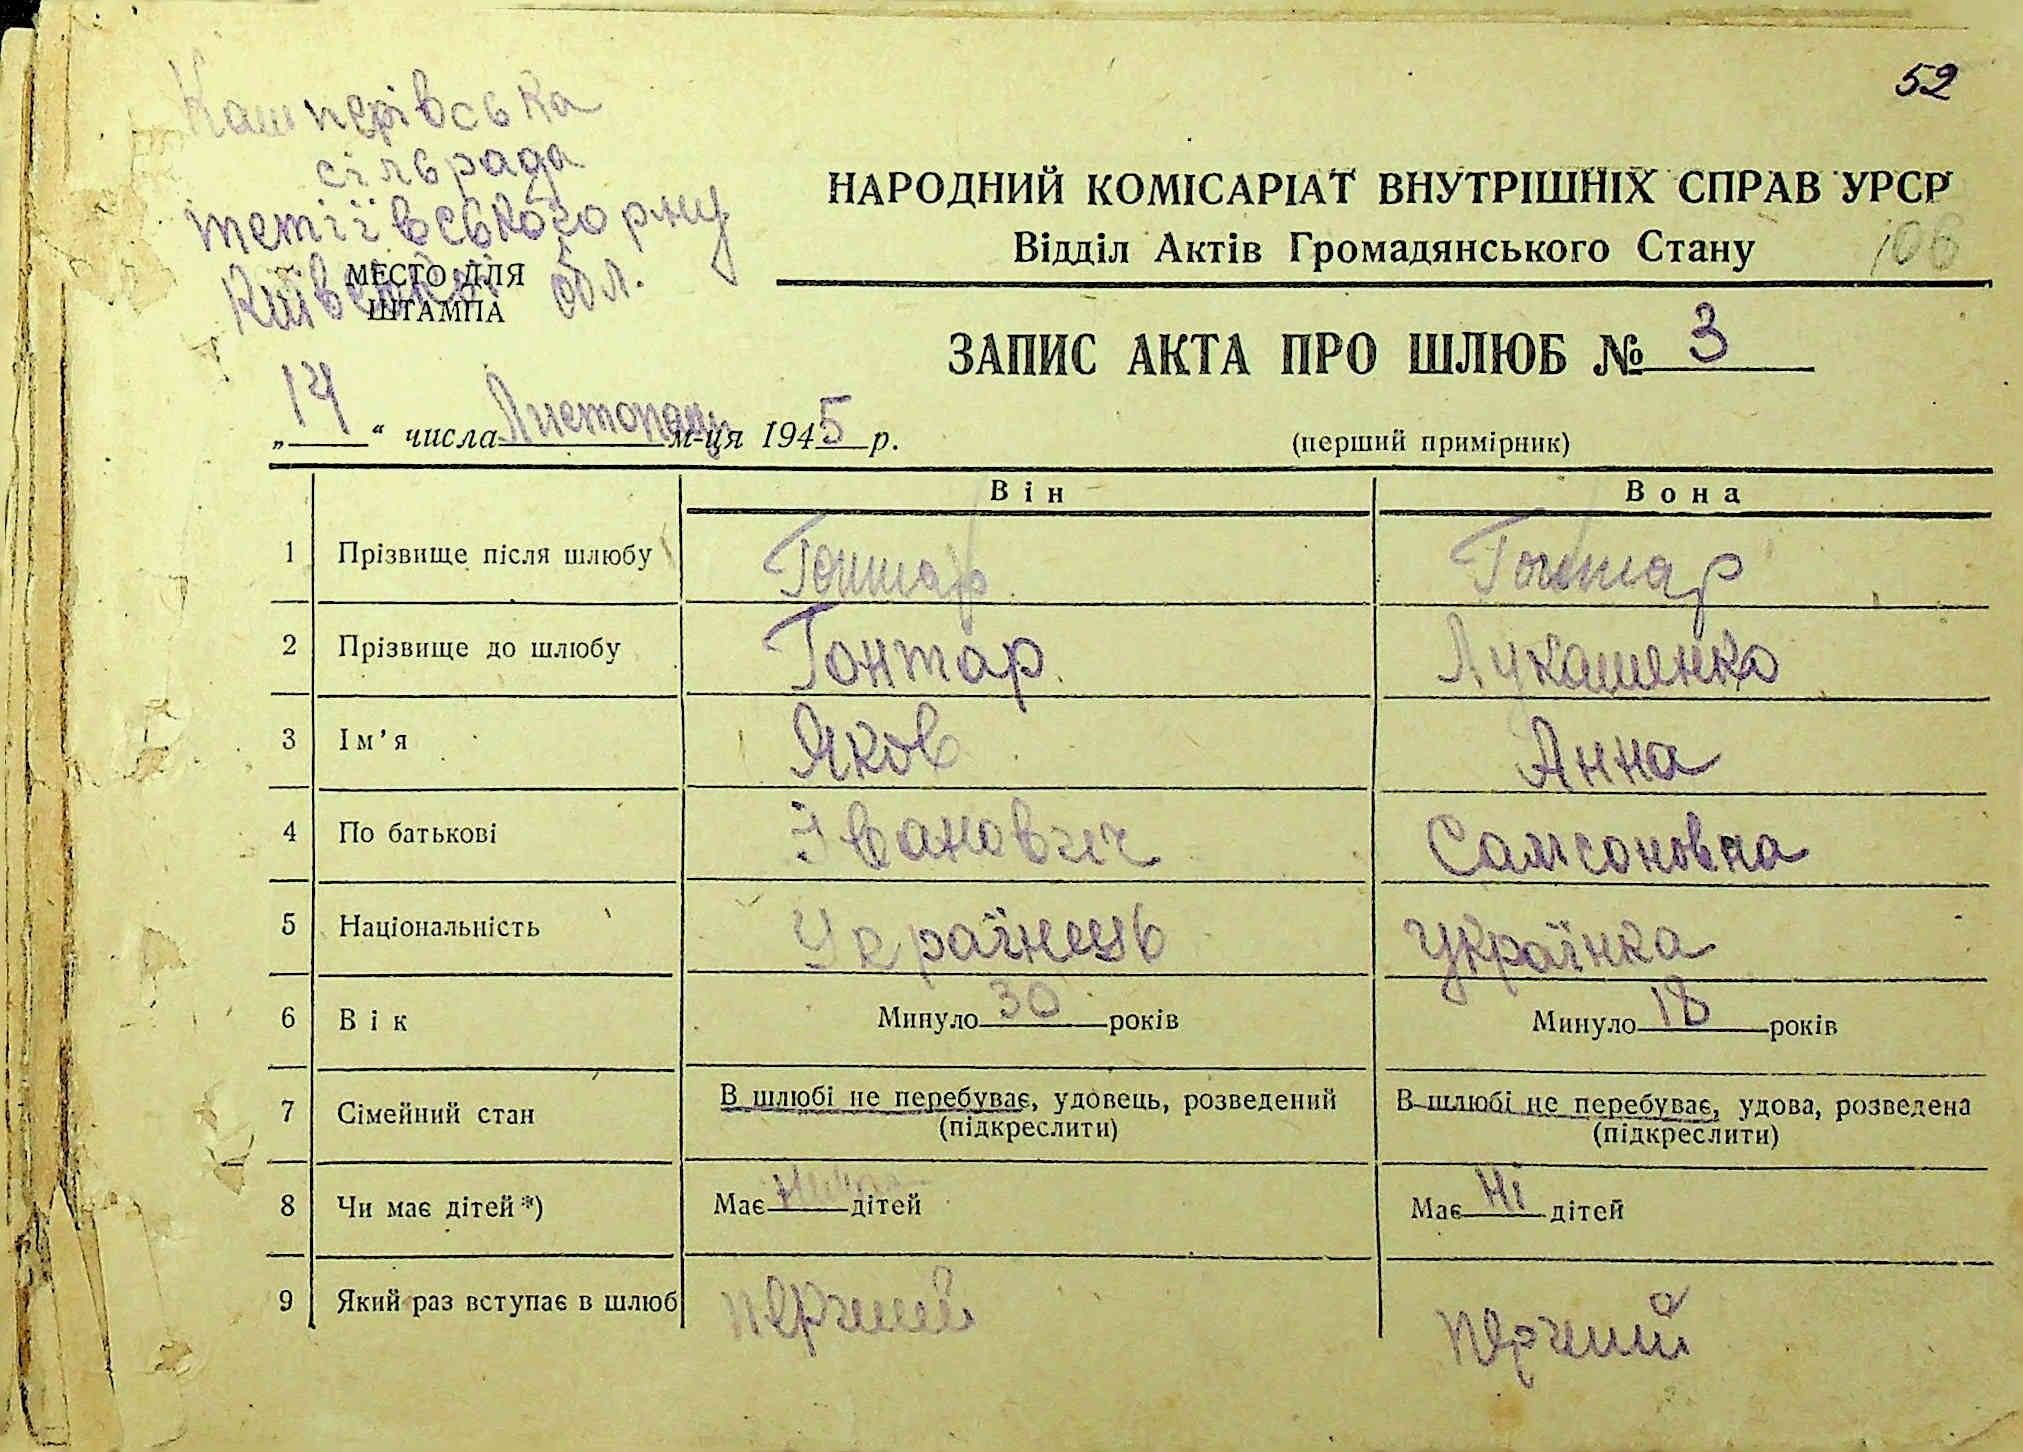 52
Кашперівська
сільрада
тетіївського рну
Київської обл.
МЕСТО ДЛЯ
ШТАМПА
НАРОДНИЙ КОМІСАРІАТ ВНУТРІШНІХ СПРАВ УРСР
Відділ Актів Громадянського Стану
106
ЗАПИС АКТА ПРО ШЛЮБ № 3
„14“ числа Листопаду м-ця 1945 р.
(перший примірник)
Він Вона
1 Прізвище після шлюбу Гонтар Гонтар
2 Прізвище до шлюбу Гонтар Лукашенко
3 Ім’я Яков Анна
4 По батькові Іванович Самсоновна
5 Національність Українець Українка
6 Вік Минуло 30 років Минуло 18 років
7 Сімейний стан В шлюбі не перебуває, удовець, розведений В шлюбі не перебуває, удова, розведена
(підкреслити) (підкреслити)
8 Чи має дітей*) Має дітей Має Ні дітей
9 Який раз вступає в шлюб перчий перчий